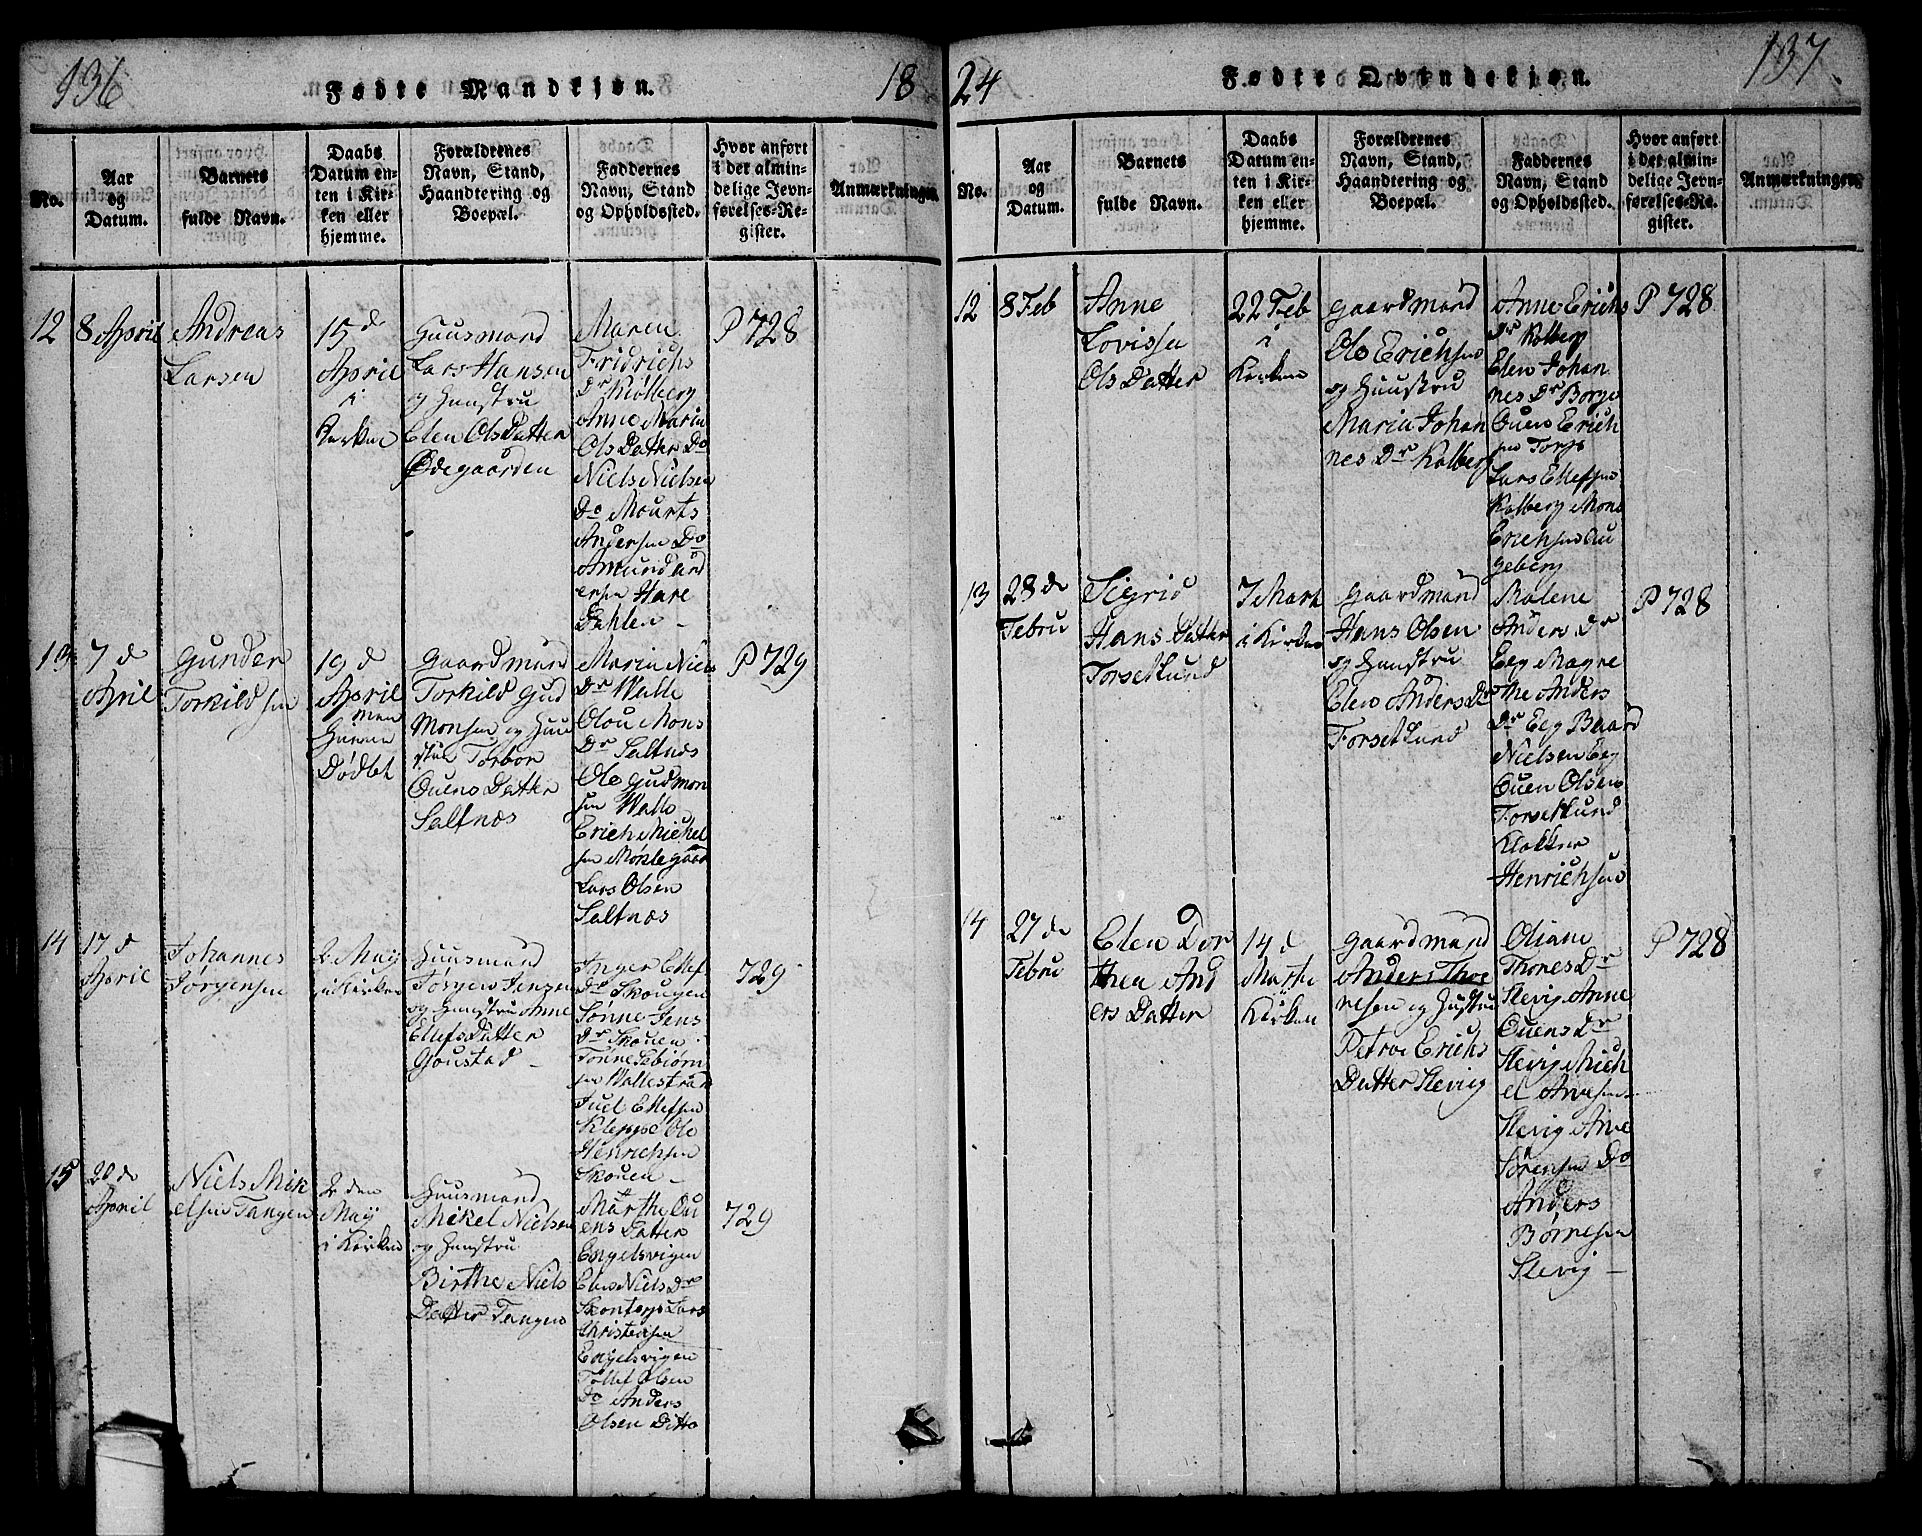 136
Fødte Mandkjøn.
18
No.
Aar
og
Datum.
Barnets
fulde Navn.
Daabs
Datum en-
ten i Kir-
ken eller
hjemme.
Forældrenes
Navn, Stand,
Haandtering og
Boepæl.
Faddernes
Navn, Stand
og Opholdssted.
Hvor anført
i der almin-
delige Jevn-
førelses-Re-
gister.
Anmærkninger
12
8 April
Andreas
Larsen
15 d
April
i
Kirken
Huusmand
Lars Hansen
og Hunstru
Elen Ols Datter
Ødegaarden
Maren
Fridrichs
Dr Kølberg
Anne Maria
Ols Datter Do
Niels Nielsen
Do Mourts
Andersen Do
Amund And
ersen Hare
Dahlen
P 728
13
7 d
April
Gunder
Torkildsen
19 d
April
Døbt
Gaardmand
Torkild Gud
Monsen og Huu
stru Torbor
Ouens Datter
Saltnæs
Maria Niels
Dr Walle
Olou Mons
Dr Saltnæs
Ole Gudmon
sen Walle
Erich Michel
sen
Lars Olsen
Saltnæs
P 729
14
17 d
April
Johannes
Jørgensen
2 May
i Kirken
Huusmand
Jørgen Jensen
og Hunstru Anne
Ellefs Datter
Goustad
Inger Ellef
Dr Skougen
Sønne Jens
Dr Skouen
Tønne Esbiørn
sen Wallestrand
Juel Ellefsen
Kleppe Ole
Henrichsen
Skouen
729
15
20 de
April
Niels Mik
elsen Tangen
2 den
May
i Kirken
Huusmand
Mikel Nielsen
og Hunstru
Birthe Niels
Datter Tangen
Marthe Ou
ens Datter
Engelsvigen
Elen Niels Dr
Skontorp Lars
Christensen
Engelsvigen
Tollef Olsen
Do Anders
Olsen Ditto
729
24
Fødte Qvindekjøn.
137
No.
Aar
og
Datum.
Barnets
fulde Navn.
Daabs
Datum en-
ten i Kir-
ken eller
hjemme.
Forældrenes
Navn, Stand,
Haandtering og
Boepæl.
Faddernes
Navn, Stand
og Opholdssted.
Hvor anført
i det almin-
delige Jevn-
førelses-Re-
gister.
Anmærkninger
12
8 Feb
Anne
Lovissa
Ols Datter
22 Feb
i
Kirken
Gaardmand
Ole Erichsen
og Huustru
Maria Johan
nes Dr Kolberg
Anne Erichs
Dr Kolberg
Elen Johan
nes Dr Borge
Ouen Erich
sen Torp
Lars Ellefsen
Kolberg Mons
Erichsen Au
geberg
P 728
13
28 de
Febru
Sigrid
Hans Datter
Torsetlund
7 Mart
i Kirken
Gaardmand
Hans Olsen
og Hunstru
Elen Anders Dr
Forsetlund
Malene
Anders Dr
Eeg Magre
the Anders
Dr Eeg Baard
Nielsen Eeg
Ouen Olsen
Torsetlund
Klokker
Henrichsen
P 728
14
27 de
Febru
Elen Dor
thea And
ers Datter
14 d
Marti
Kirken
Gaardmand
Anders Thor
nesen og Hustru
Petroe Erichs
Datter Slevig
Oliane
Thones Dr
Slevig Anne
Ouens Dr
Slevig Mich
el Arnesen
Slevig Arne
Sørensen Do
Anders
Børnesen
Slevig
P 728